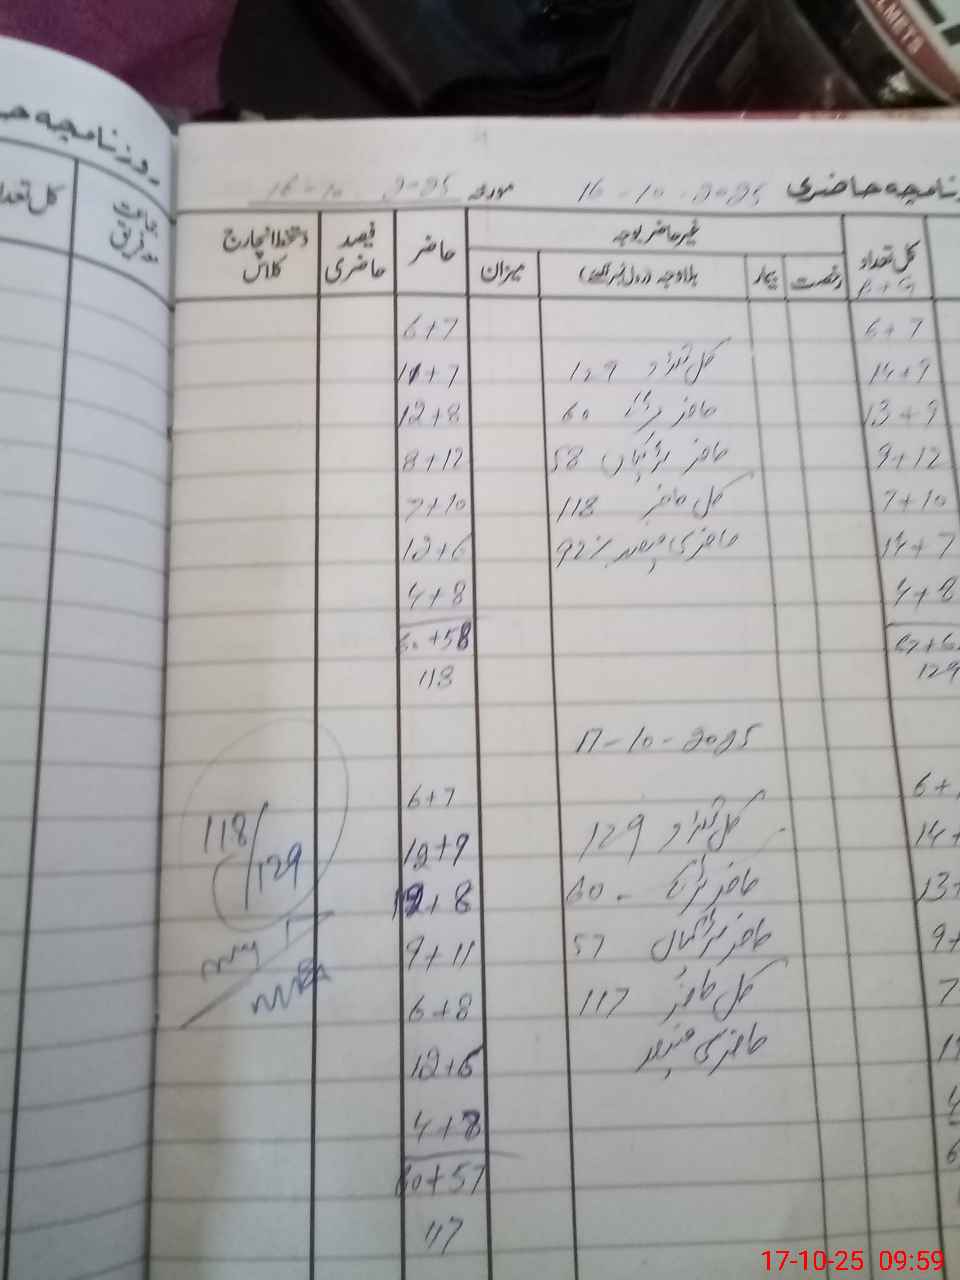 روزنامچہ
جماعت و فریق
کل تعداد
روزنامچہ حاضری 16-10-2025 مورخہ 16-10-2025
کل تعداد B+G
رخصت
بیمار
غیر حاضر بوجہ
بلاوجہ (رول نمبر لکھیں)
میزان
حاضر
فیصد حاضری
دستخط انچارج کلاس
6+7 6+7
14+9 کل تعداد 129 11+7
13+9 حاضر بوائز 60 12+8
9+12 حاضر لڑکیاں 58 8+12
7+10 کل حاضر 118 7+10
14+7 حاضری فیصد 92% 12+6
4+8 4+8
60+58
129 118
17-10-2025
6+ 6+7
14+ کل تعداد 129 12+9
13+ 60 12+8
9+ حاضر لڑکیاں 57 9+11
7 کل حاضر 117 6+8
حاضری فیصد 12+6
4 4+8
6 60+57
117
118/129
17-10-25 09:59